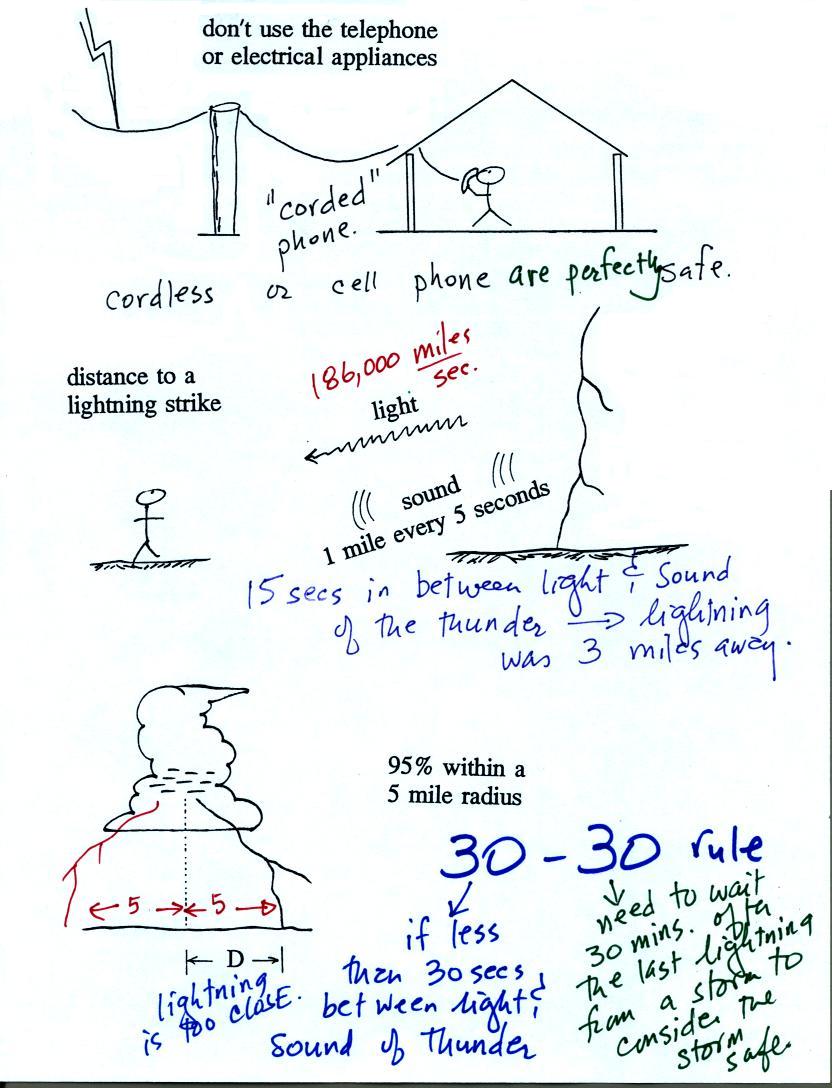 don't use the telephone
or electrical appliances
"corded"
phone.
cordless or cell phone are perfectly safe.
distance to a
lightning strike
186,000 miles
sec.
light
sound
1 mile every 5 seconds
15 secs in between light & sound
of the thunder → lightning
was 3 miles away.
95% within a
5 mile radius
30 - 30 rule
5 5
D
lightning
is too close.
if less
than 30 secs
between light &
sound of thunder
need to wait
30 mins. after
the last lightning
from a storm to
consider the
storm
safe.